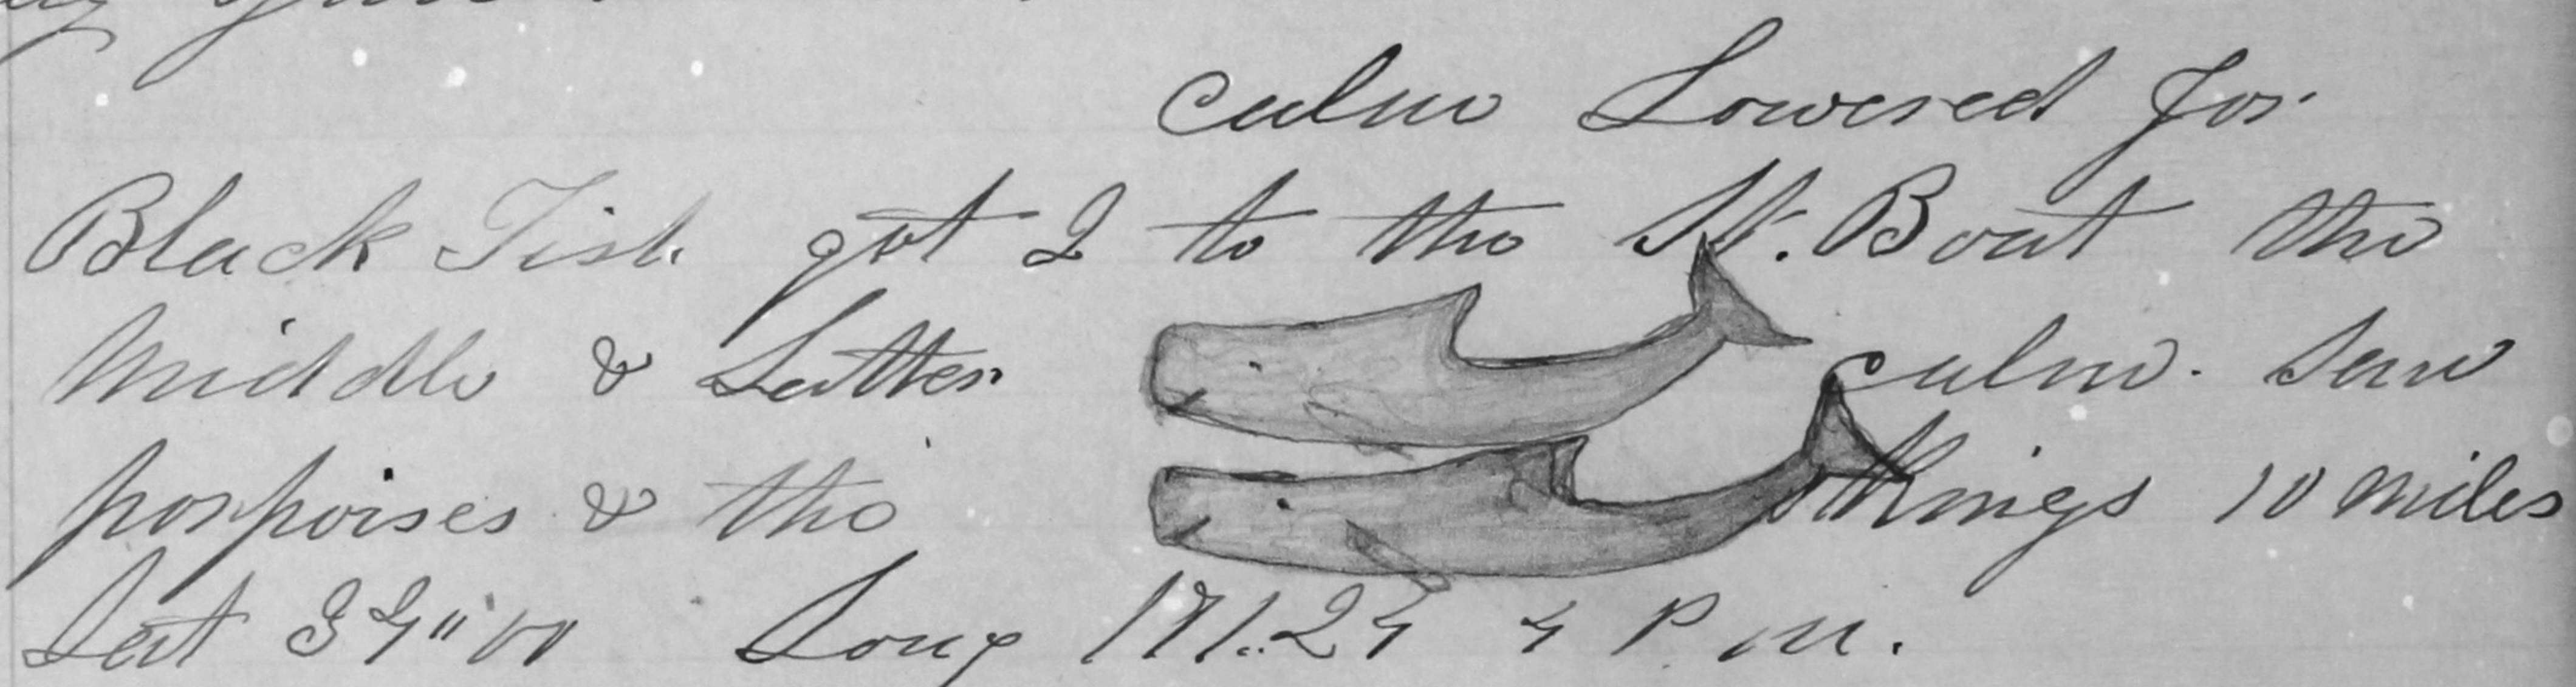 calm Lowered for
Black Fish got 2 to the St. Boat the
Middle & Latter calm. Saw
porpoises & the Kings 10 miles
Lat 34"00 Long 171..24 4 P.M.